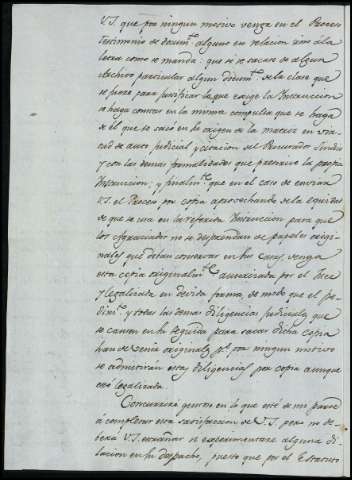 V.I. que por ningun motivo venga en el Proceso
testimonio de docum.to alguno en relacion sino á la
letra como se manda: que si se sacase de algun
Archivo particular algun docum.to de la clase que
se pide para justificar lo que exige la Instruccion
se haga constar en la misma compulsa que se haga
de él que se sacó en la origen de la materia en vir-
tud de auto judicial y citacion del Procurador Sindico
y con las demas formalidades que prescrive la propia
Instruccion; y finalm.te que en el caso de enviar
V.I. el Proceso por copia aprovechandose de la equidad
de que se usa en la referida Instruccion para que
los agraciados no se desprendan de papeles origi-
nales que deban conservar en sus casas, venga
esta copia originalm.te autorizada por el
y legalizada en devida forma, de modo que el pe-
dim.to y todas las demas diligencias judiciales que
se causen en su seguida para sacar dicha copia
han de venir originales p.r q.e por ningun motivo
se admitirán estas diligencias por copia aunque
esté legalizada.
Concurriré gustoso en lo que esté de mi parte
á completar esta satisfaccion de V.I. pero no de-
berá V.I. estrañar si experimentare alguna di-
lacion en su despacho, puesto que por el Estatuto